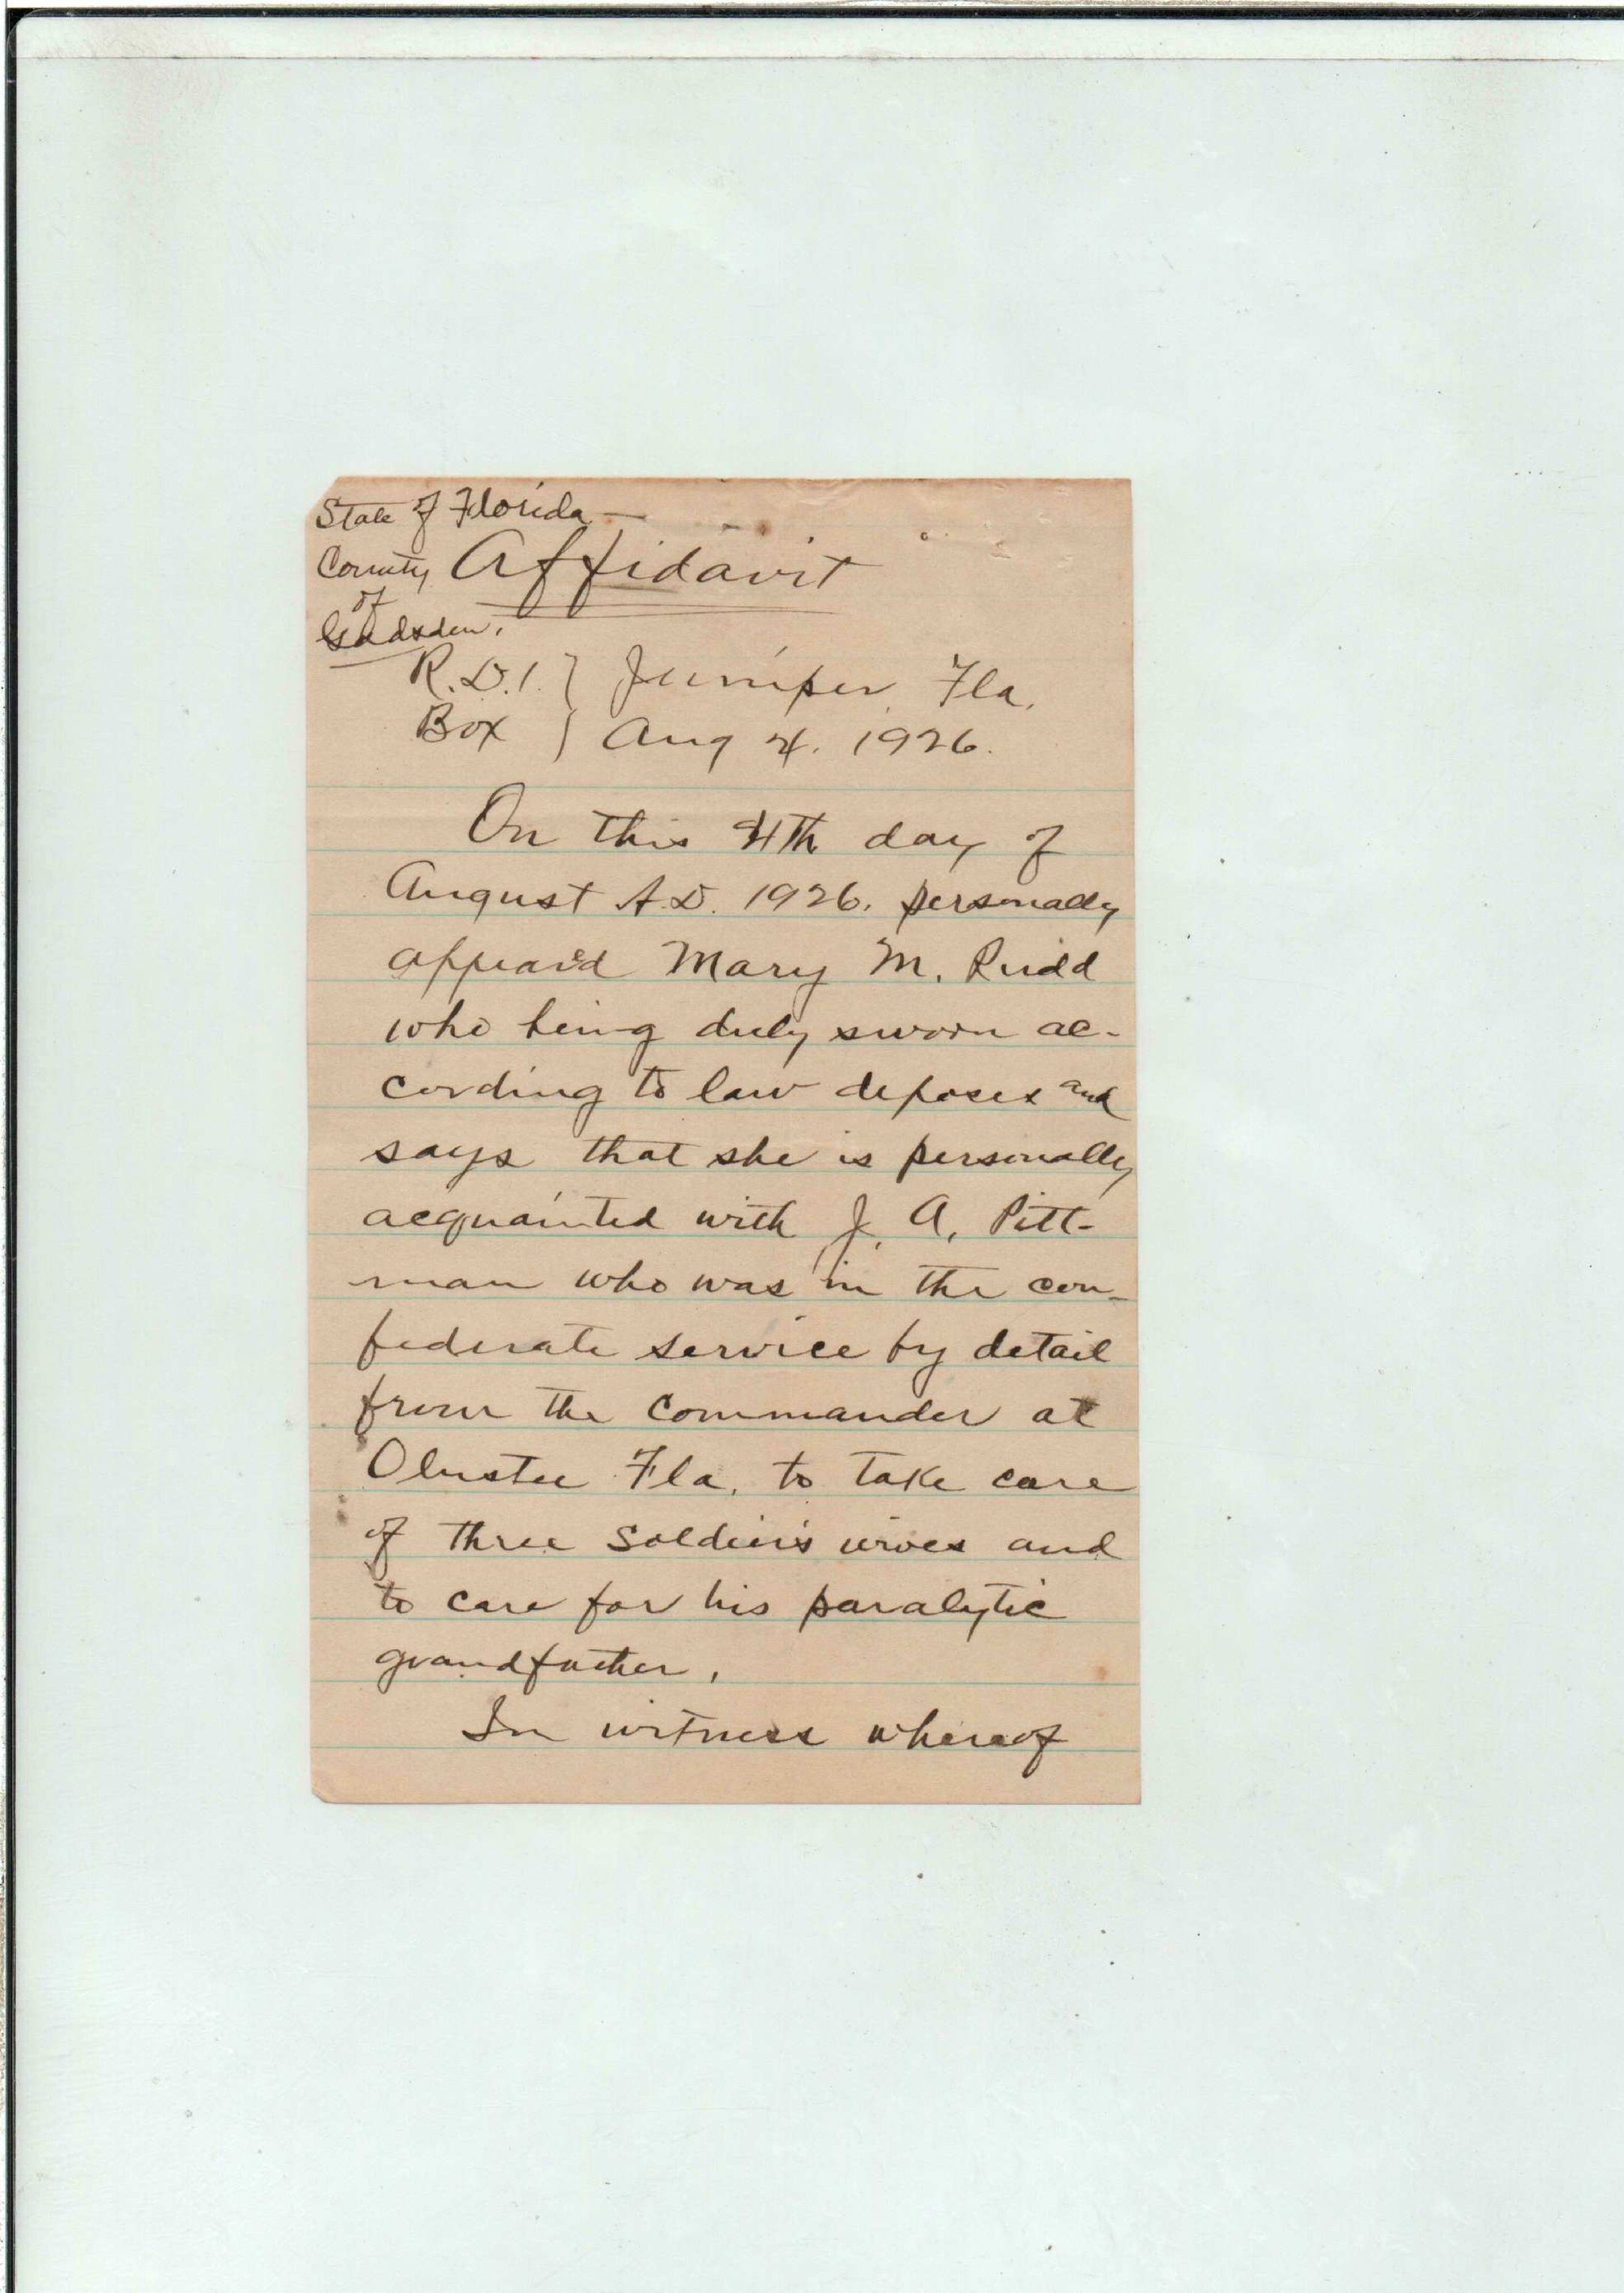 State of Florida —
County Affidavit
of
Gadsden.
R.D.1. } Juniper, Fla.
Box } Aug 4. 1926.
On this 4th day of
August A.D. 1926. personally
appear'd Mary M. Rudd
who being duly sworn ac-
cording to law deposes and
says that she is personally
acquainted with J. A. Pitt-
man who was in the con-
federate service by detail
from the Commander at
Olustee Fla. to take care
of three Soldier's wives and
to care for his paralytic
grandfather.
In witness whereof